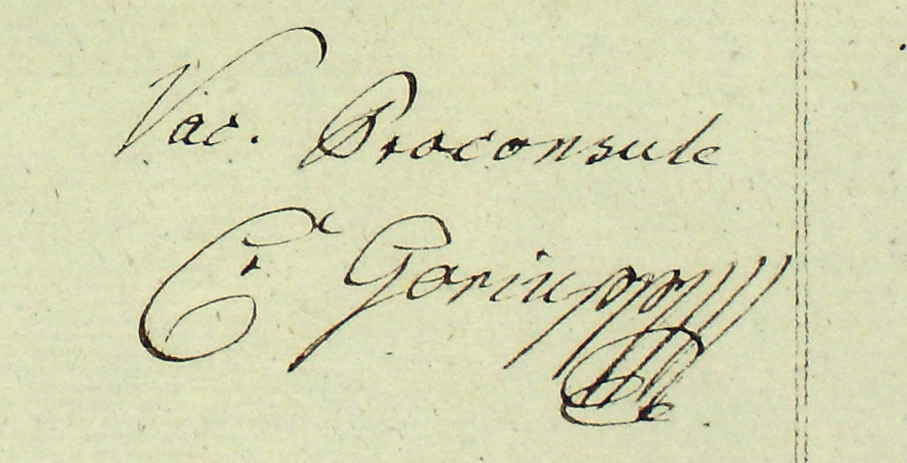 Vac. Proconsule
Gariupp